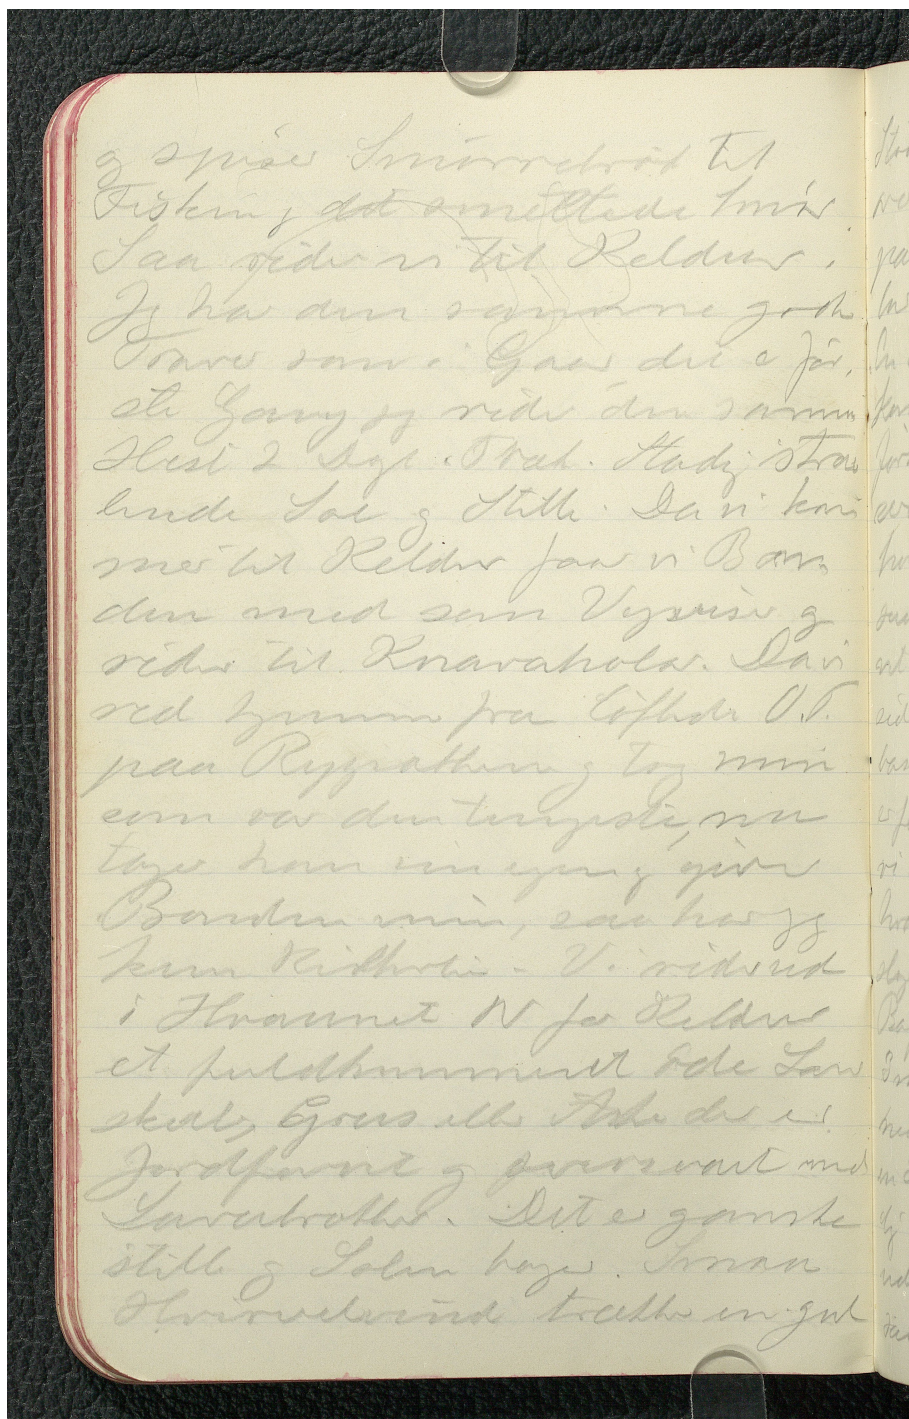 og spiser Smørrebrød til
Fisken, det smeltede Smør
Saa rider vi til Keldur.
Jeg har den samme gode
Traver som i Gaar det er før-
ste Gang jeg rider den samme
Hest 2 Dage i Træk. Stadig straa
lende Sol og Stille. Da vi kom
mer til Keldur faar vi Bon
den med som Vejviser og
rider til Knavaholar. Da vi
red hjemme fra O.P.
paa og tog min
som var den tungeste, nu
tager han sin egen og giver
Bonden min, saa har jeg
kun . Vi rider ud
i Hraunet N for Keldur
et fuldkomment øde Lan
skab, Grus eller Aske der er
Jordfarvet og oversaaet med
Lavabrokker. Det er ganske
stille og Solen bager. Smaa
Hvirvelvind trækker en gul